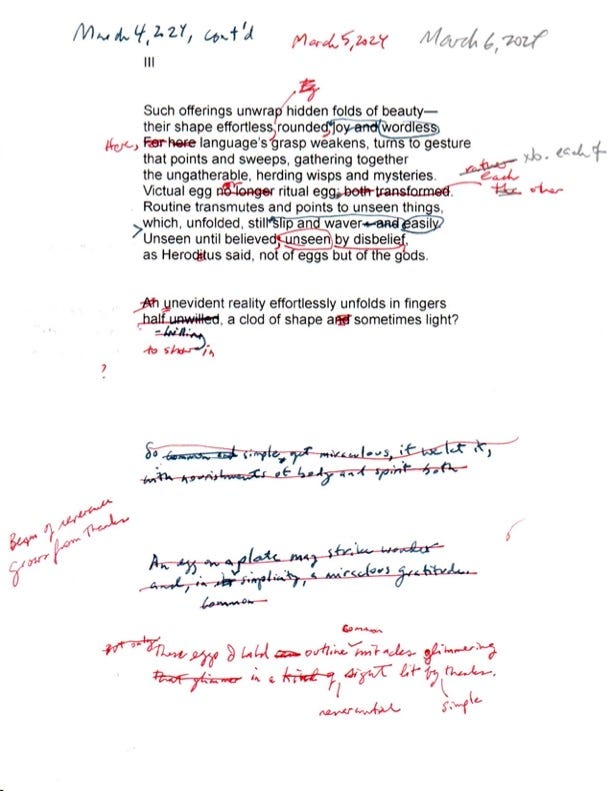 March 4, 2024, cont'd March 5, 2024 March 6, 2024
III
Such offerings unwrap hidden folds of beauty—
their shape effortless, rounded, joy and wordless
Here, For here language's grasp weakens, turns to gesture
that points and sweeps, gathering together
the ungatherable, herding wisps and mysteries.
rather xb. each of
Victual egg no longer ritual egg, both transformed.
each
the other
Routine transmutes and points to unseen things,
which, unfolded, still slip and waver and easily
Unseen until believed, unseen by disbelief,
as Heroditus said, not of eggs but of the gods.
An unevident reality effortlessly unfolds in fingers
half unwilled, a clod of shape and sometimes light?
-willing
to show in
?
So common and simple, yet miraculous, if we let it,
with nourishments of body and spirit both
Began of reverence
grows from thanks
An egg on a plate may strike wonder
and, in its simplicity, a miraculous gratitude.
common
common
Not only These eggs I hold outline miracles glimmering
that glimmer in a kind of sight lit by thanks.
reverential simple